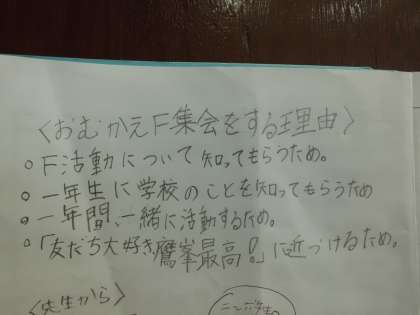 〈おむかえF集会をする理由〉
○F活動について知ってもらうため。
○一年生に学校のことを知ってもらうため
○一年間、一緒に活動するため。
○「友だち大好き、鷹峯最高!」に近づけるため。
〈先生から〉